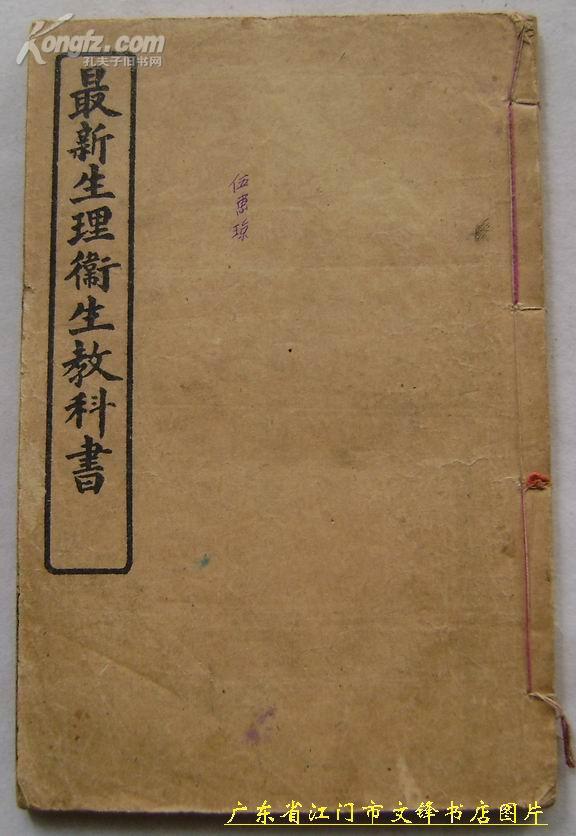 Kongfz.com
孔夫子旧书网
最新生理衛生教科書
伍惠琼
广东省江门市文锋书店图片